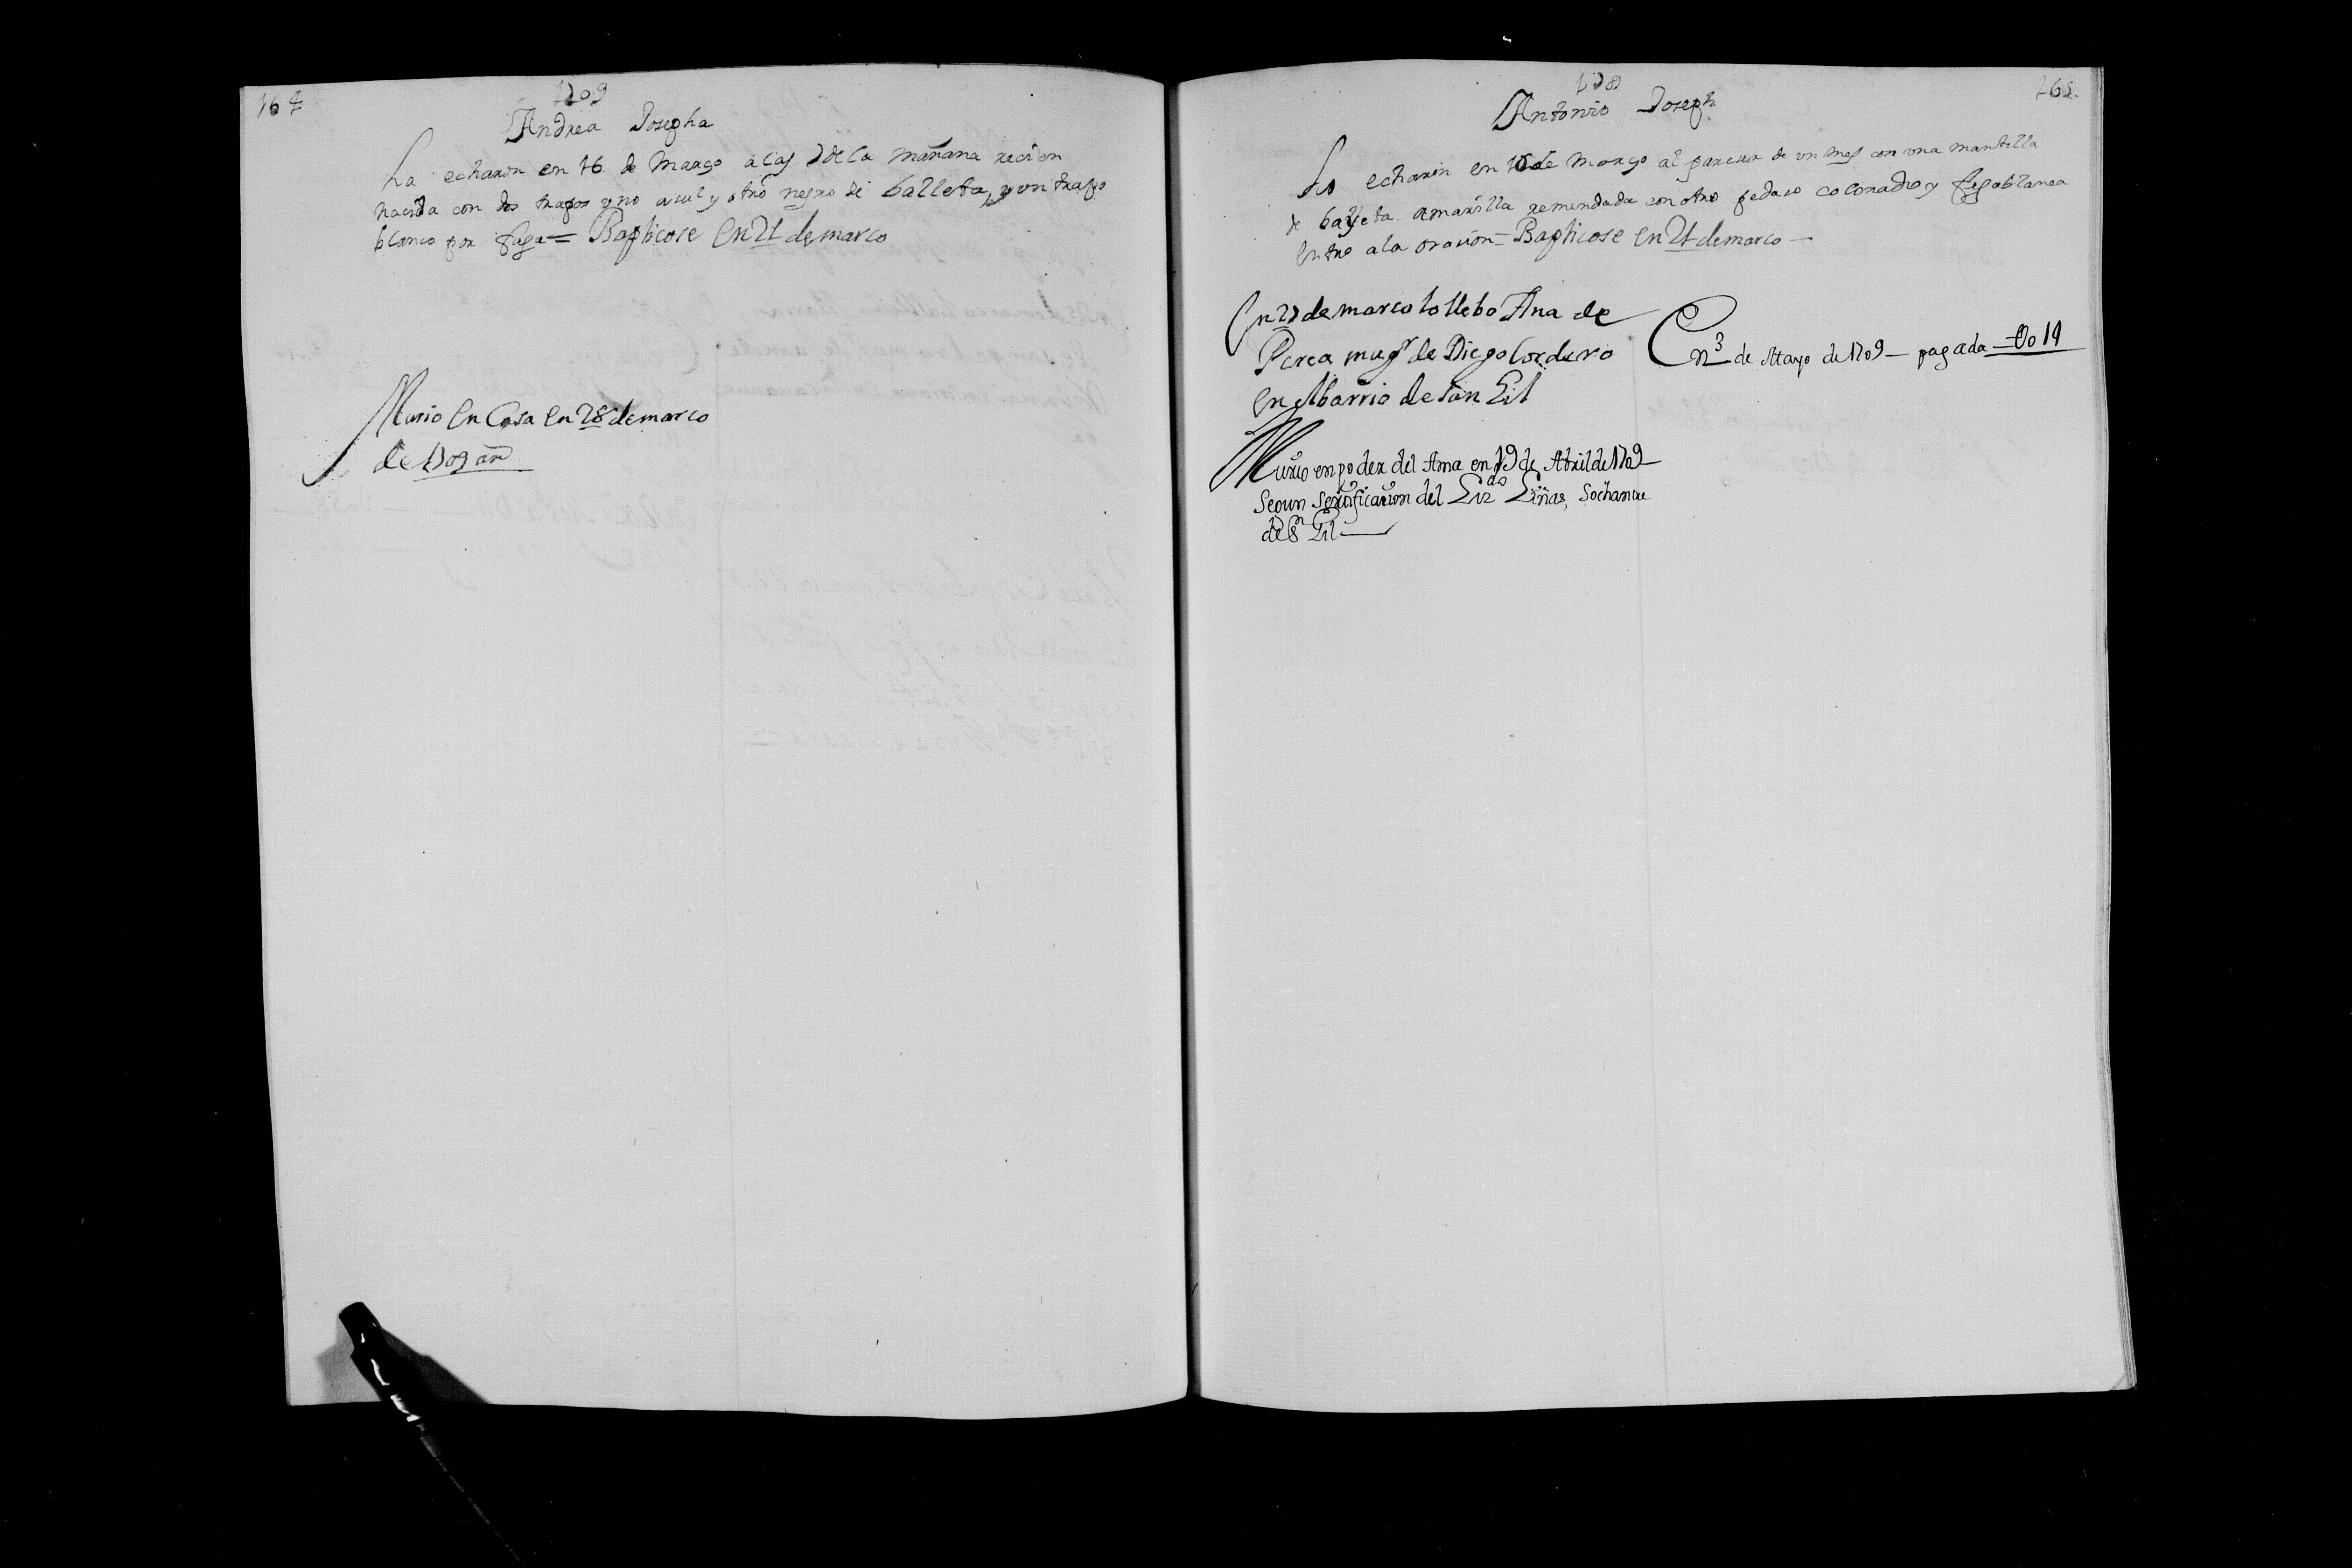 164
1709
Andrea Josepha
La echaron en 16 de Março a las 7 de la mañana recien
nacida con dos trapos vno açul y otro negro de balleta, y un trapo
blanco por faga = Bapticose en 21 de março
Murio en Casa en 28 de março
de 1709 añ
165
Antonio Joseph
Lo echaron en 16 de Março al parecer de vn mes con vna mantilla
de bayeta amarilla remendada con otro pedaço colorado y faga blanca
entro a la oraçion = Bapticose en 21 de março —
En 27 de março lo llebo Ana de
Perea mugr de Diego Cordero
en el barrio de san Gil
En 3 de Mayo de 1709 — pagada — 19
Murio en poder del Ama en 19 de Abril de 1709
Segun Sertificacion del Lizdo Liñas, Sochantre
de Sn Gil —